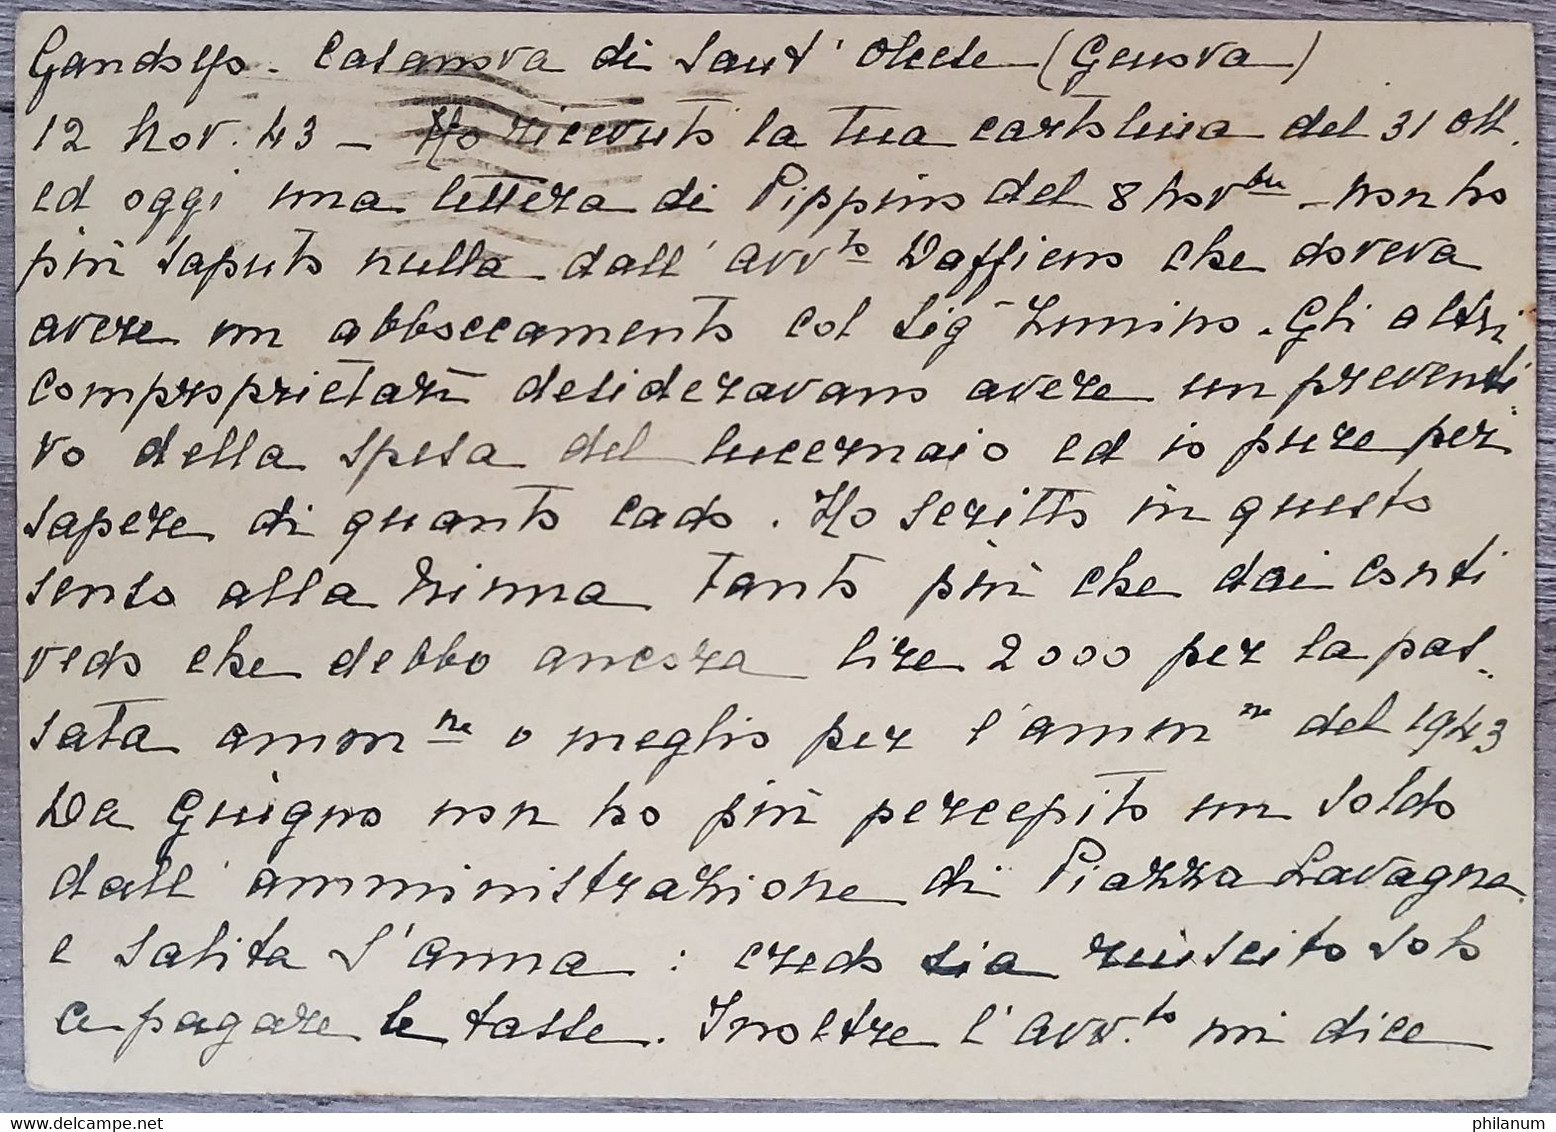 Gandolfo. Casanova di Sant'Olcese (Genova)
12 Nov. 43 - Ho ricevuto la tua cartolina del 31 Ott.
ed oggi una lettera di Pippino del 8 Novbre - Non ho
più saputo nulla dall'avvto Daffieno che doveva
avere un abboccamento col Sig Zunino. Gli altri
comproprietarî desideravano avere un preventi
vo della spesa del lucernaio ed io pure per
sapere di quanto cado. Ho scritto in questo
senso alla Ninna tanto più che dai conti
vedo che debbo ancora lire 2000 per la pas-
sata ammne o meglio per l'ammne del 1943
Da Giugno non ho più percepito un soldo
dall'amministrazione di Piazza Lavagna
e Salita S'Anna: credo sia riuscito solo
a pagare le tasse. Inoltre l'avv.to mi dice
philanum